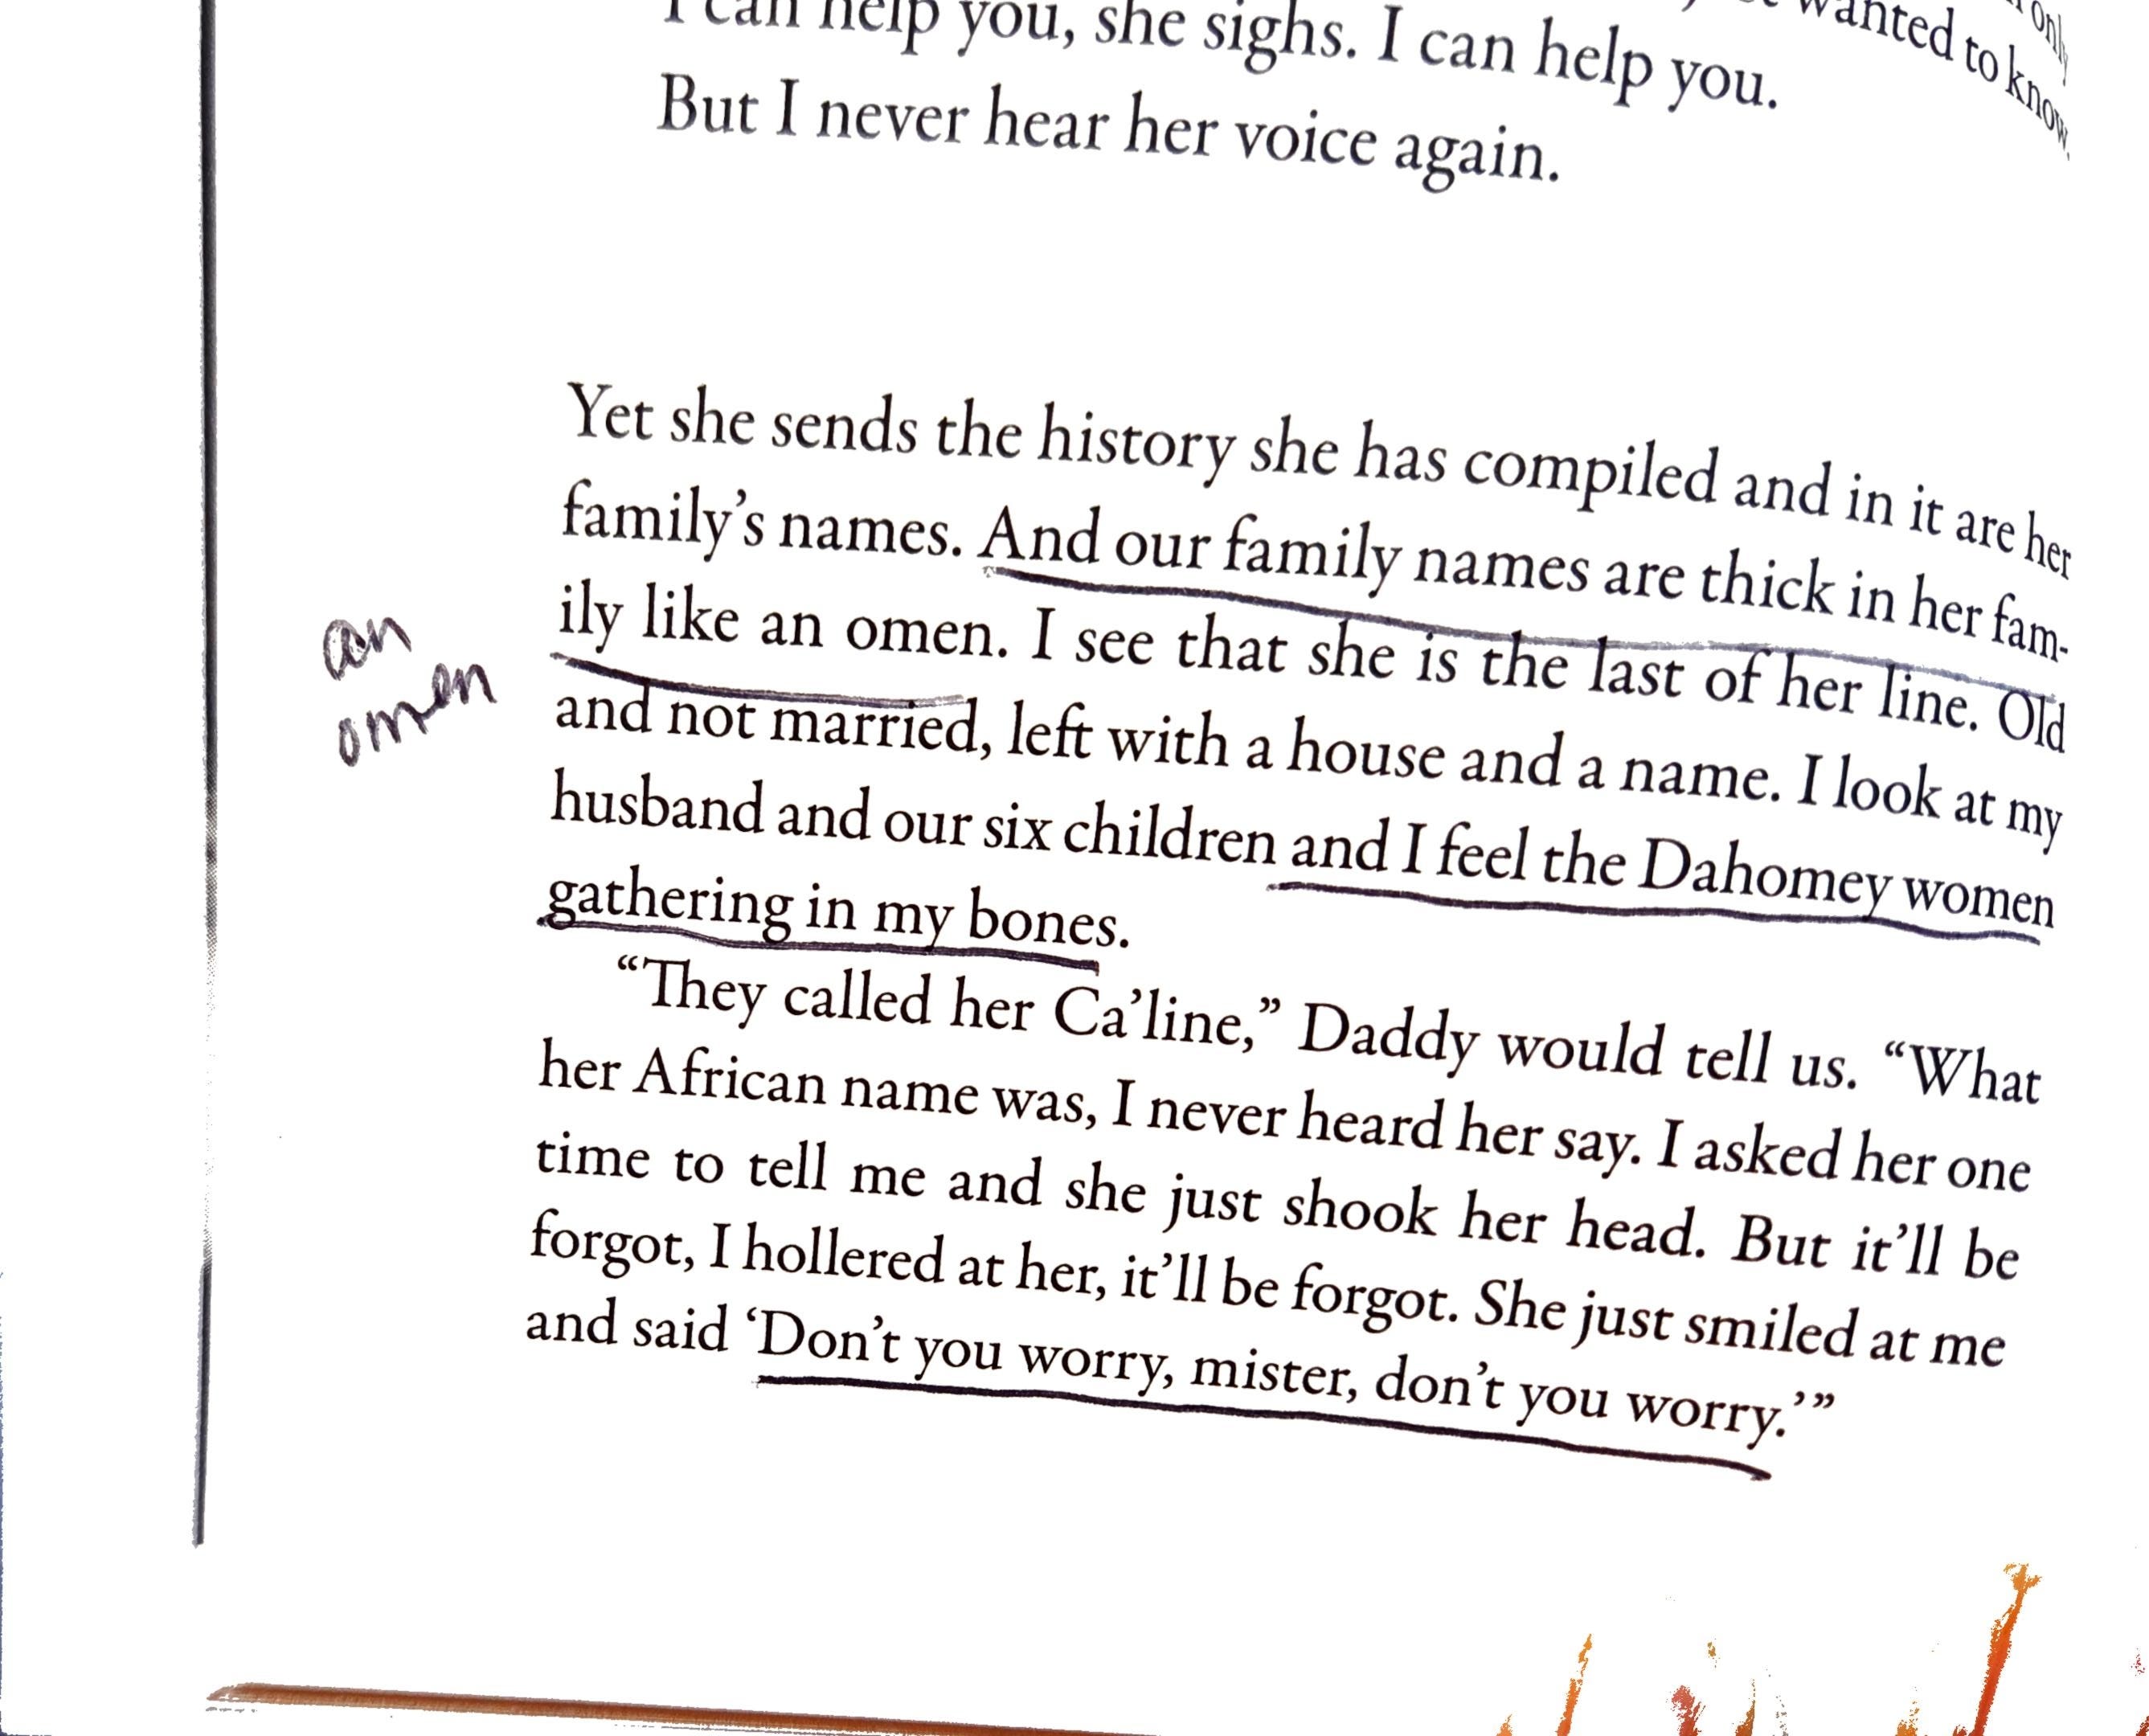 only
wanted to know.
I can help you, she sighs. I can help you.
But I never hear her voice again.
Yet she sends the history she has compiled and in it are her
family's names. And our family names are thick in her fam-
ily like an omen. I see that she is the last of her line. Old
and not married, left with a house and a name. I look at my
husband and our six children and I feel the Dahomey women
gathering in my bones.
“They called her Ca’line,” Daddy would tell us. “What
her African name was, I never heard her say. I asked her one
time to tell me and she just shook her head. But it’ll be
forgot, I hollered at her, it’ll be forgot. She just smiled at me
and said ‘Don’t you worry, mister, don’t you worry.’”
an
omen